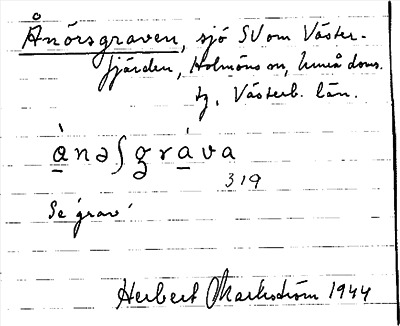 Ånörsgraven, sjö SV om Väster-
fjärden, Holmöns sn, Umeå doms.
tg, Västerb. län.
a̠̍nəʃgra̠̍va
319
Se 'grav'
Herbert Markström 1944